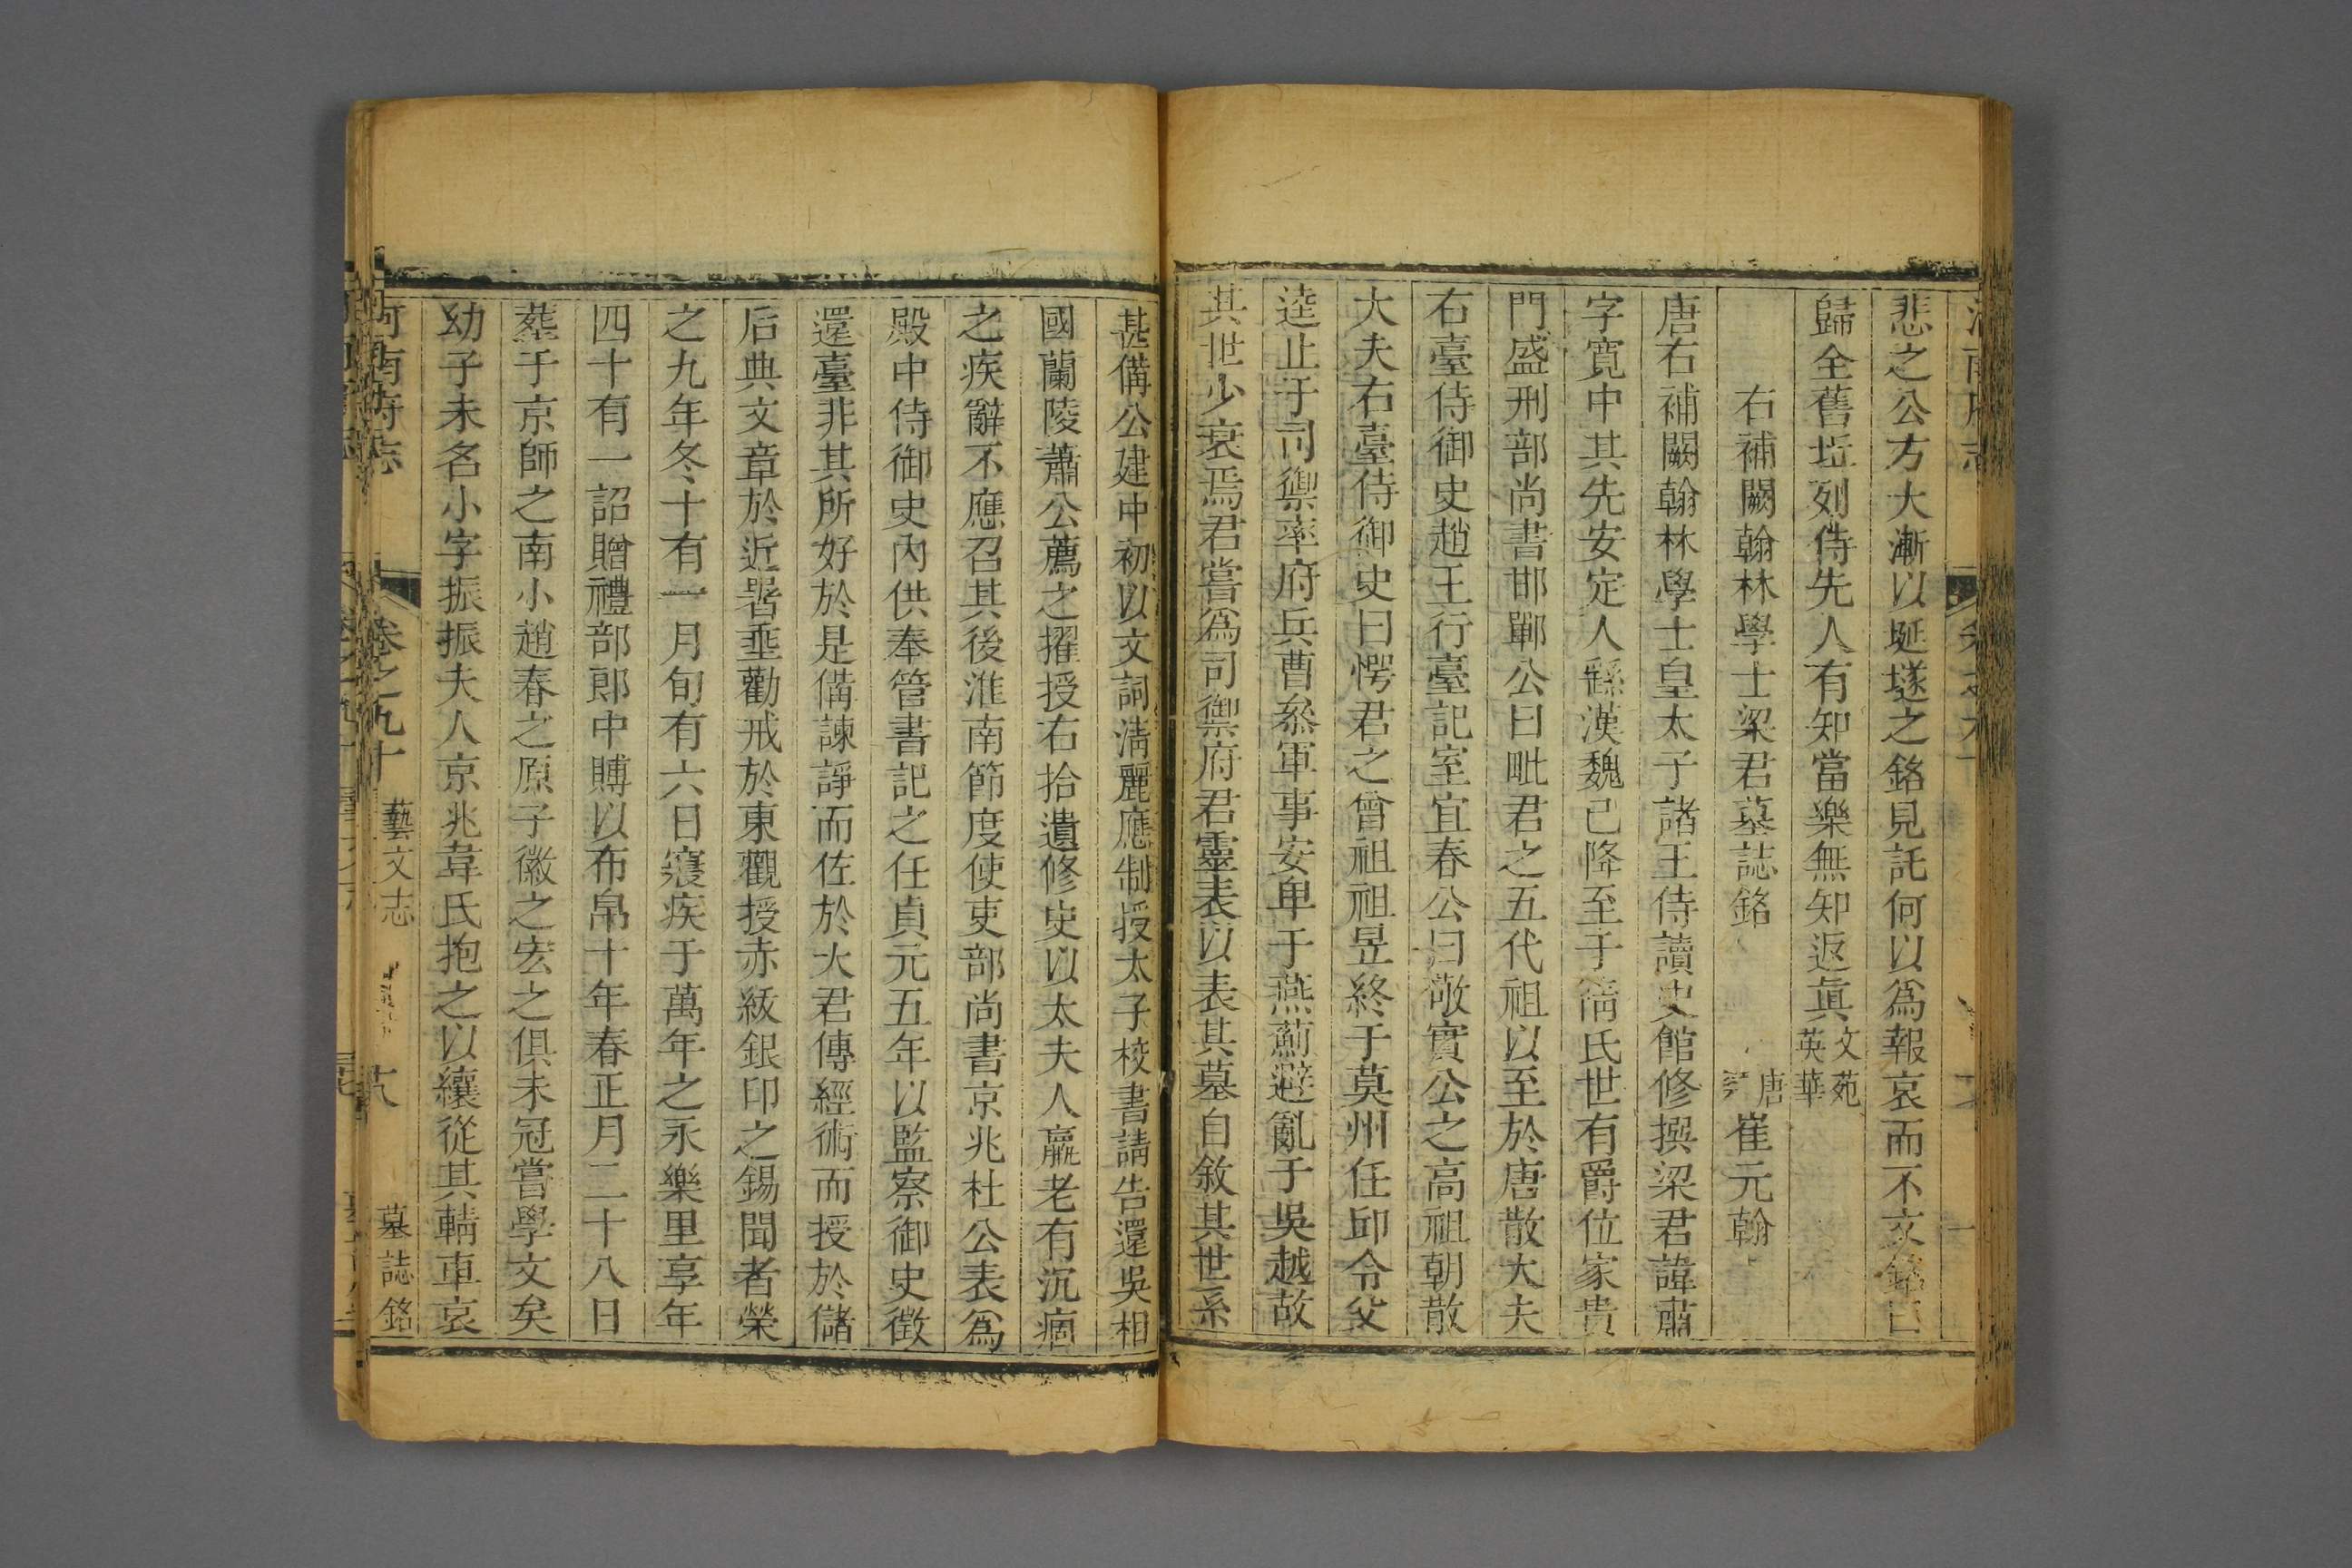 悲之公方大漸以埏墜之銘見託何以爲報哀而不文銘曰
歸全舊坵列侍先人有知當樂無知返眞文苑英華
右補闕翰林學士梁君墓誌銘 唐 崔元翰
唐右補闕翰林學士皇太子諸王侍讀史館修撰梁君諱肅
字寬中其先安定人繇漢魏已降至于隋氏世有爵位家貴
門盛刑部尚書邯鄲公曰毗君之五代祖以至於唐散大夫
右臺侍御史趙王行臺記室宜春公曰敬實公之高祖朝散
大夫右臺侍御史曰愕君之曾祖祖昱終于莫州任邱令父
逵止于司禦率府兵曹叅軍事安卑于燕薊避亂于吳越故
其世少衰焉君嘗爲司禦府君靈表以表其墓自敘其世系
甚備公建中初以文詞淸麗應制授太子校書請告還吳相
國蘭陵蕭公薦之擢授右拾遺修史以太夫人羸老有沉痼
之疾辭不應召其後淮南節度使吏部尚書京兆杜公表爲
殿中侍御史內供奉管書記之任貞元五年以監察御史徵
還臺非其所好於是備諫諍而佐於大君傳經術而授於儲
后典文章於近署垂勸戒於東觀授赤紱銀印之錫聞者榮
之九年冬十有一月旬有六日寢疾于萬年之永樂里享年
四十有一詔贈禮部郎中賻以布帛十年春正月二十八日
葬于京師之南小趙春之原子徽之宏之俱未冠嘗學文矣
幼子未名小字振振夫人京兆韋氏抱之以纕從其輤車哀
河南府志 卷之九十 藝文志 十八 墓誌銘